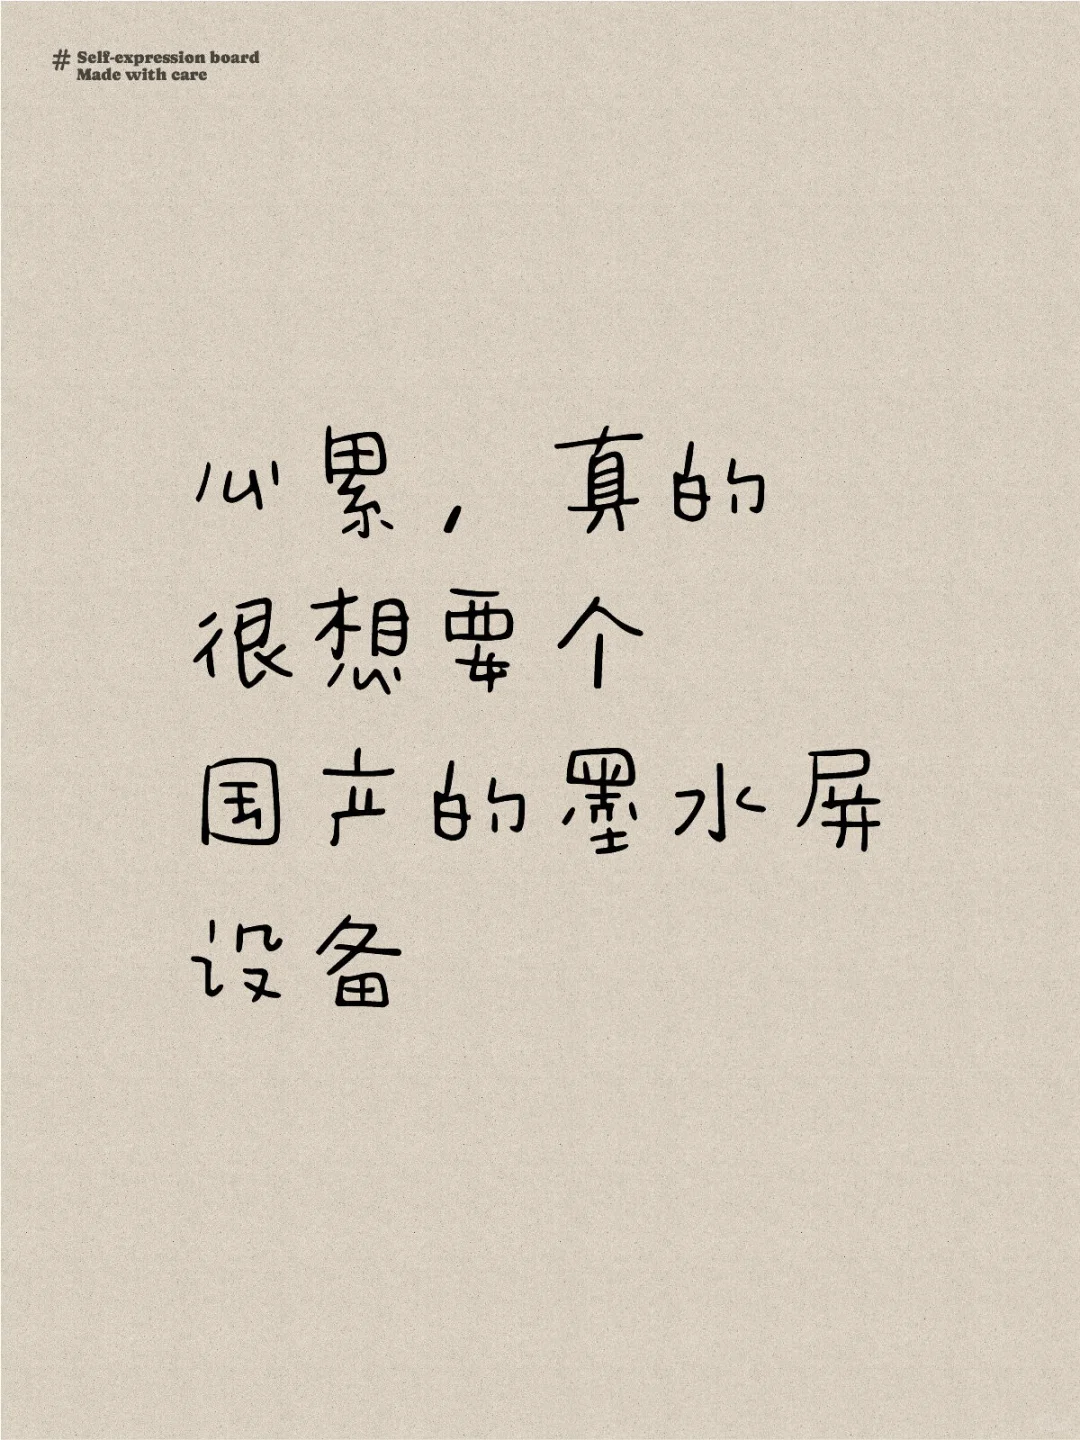 # Self-expression board
Made with care
心累，真的
很想要个
国产的墨水屏
设备